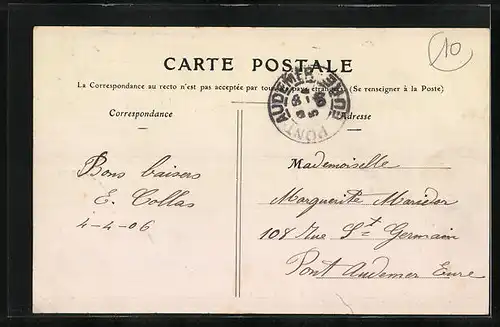 CARTE POSTALE
10
La Correspondance au recto n'est pas acceptée par tous les pays étrangers (Se renseigner à la Poste)
PONT AUDEMER EURE
Correspondance
Adresse
Bons baisers
E. Collas
4-4-06
Mademoiselle
Marguerite
108 Rue St Germain
Pont Audemer Eure